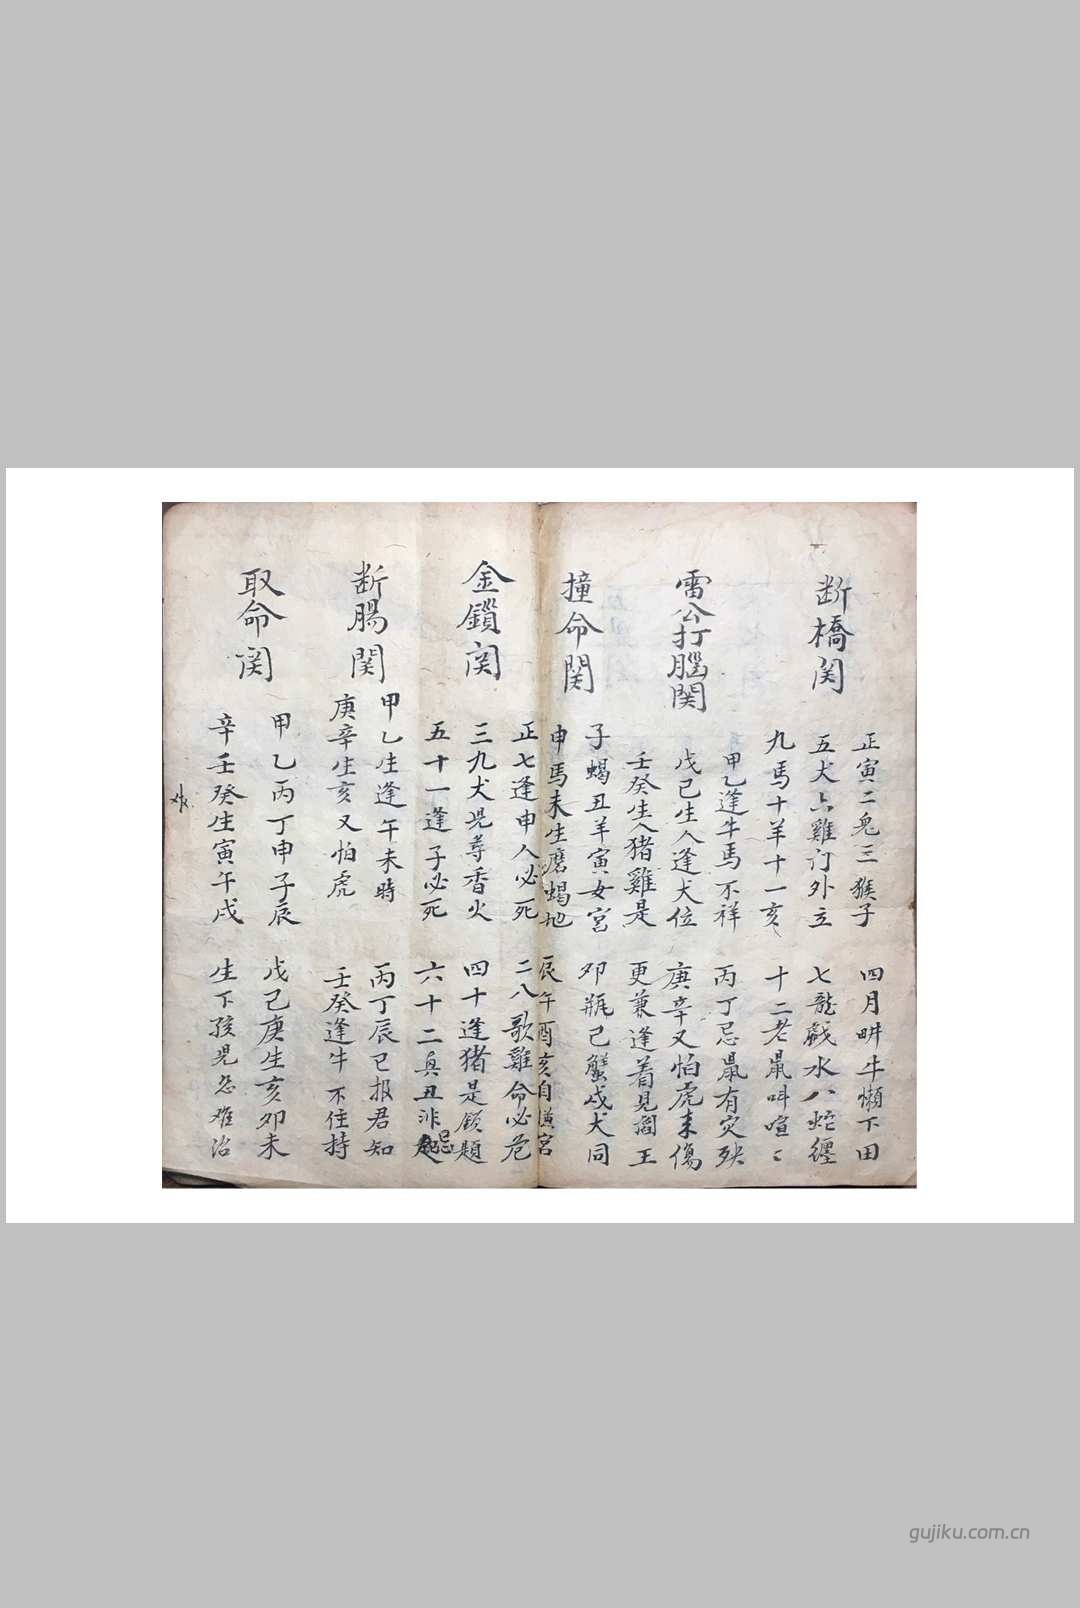 断橋関
正寅二兔三猴子 四月畊牛懶下田
五犬六雞门外立 七龍戲水八蛇纒
九馬十羊十一亥 十二老鼠呌喧〻
雷公打腦関
甲乙逢牛馬不祥 丙丁忌鼠有灾殃
戊己生人逢犬位 庚辛又怕虎来傷
壬癸生人猪雞是 更兼逢着見閻王
撞命関
子蝎丑羊寅女宮 夘瓶巳蟹戌犬同
申馬未生磨蝎地 辰午酉亥自
金鎖関
正七逢申人必死 二八歌雞命必危
三九犬児尋香火 四十逢猪是 題
五十一逢子必死 六十二 丑 忌
断腸関
甲乙生逢午未時 丙丁辰巳报君知
庚辛生亥又怕虎 壬癸逢牛不住持
取命関
甲乙丙丁申子辰 戊己庚生亥夘未
辛壬癸生寅午戌 生下孩児忌难治
gujiku.com.cn